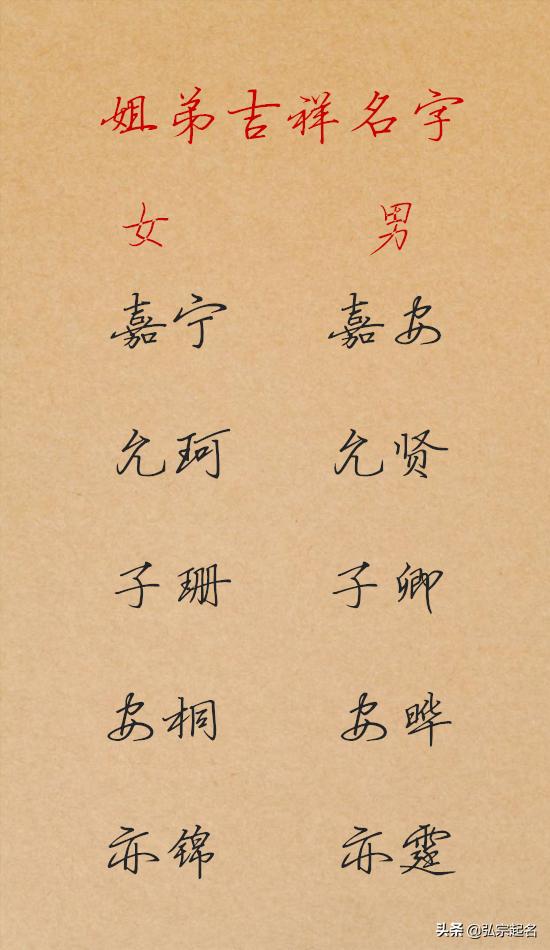 姐弟吉祥名字
女 男
嘉宁 嘉安
允珂 允贤
子珊 子卿
安桐 安晔
亦锦 亦霆
头条 @弘宗起名